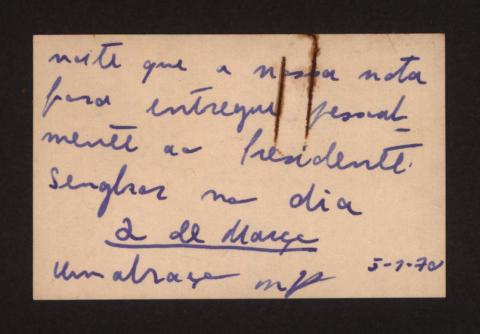 noite que a nossa nota
fora entregue pessoal-
mente ao Presidente
Senghor no dia
2 de Março
Um abraço
5-7-70